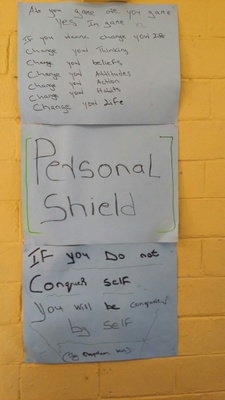 Are you game are you game
Yes In game n
If you wanna change your Life
Change your Thinking
Change your beliefs
Change your Attitudes
Change your Action
Change your Habits
Change your Life
Personal
Shield
IF you Do not
Conquer self
You will be conquered
by self
(By